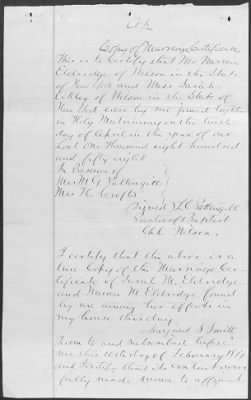 Copy of Marriage Certificate
This is to Certify that Mr Warren
Eldredge of Wilson in the State
of New York and Miss Sarah
of Wilson in the State of
New York were by me joined together
in Holy Matrimony on the
day of April in the year of our
Lord One Thousand eight hundred
and fifty eight
In Presence of
Mrs M G Pattengill
Mrs H. Crofts
Signed L C Pattengill
Pastor of Baptist
Ch Wilson.
I certify that the above is a
true Copy of the Marriage Cer
tificate of Sarah M. Eldredge
and Warren M Eldredge found
by me among her effects in
my house this day
Margaret S. Smith
Sworn to and Subscribed before
me this 10th day of February
and I certify that its contents were
fully made known to